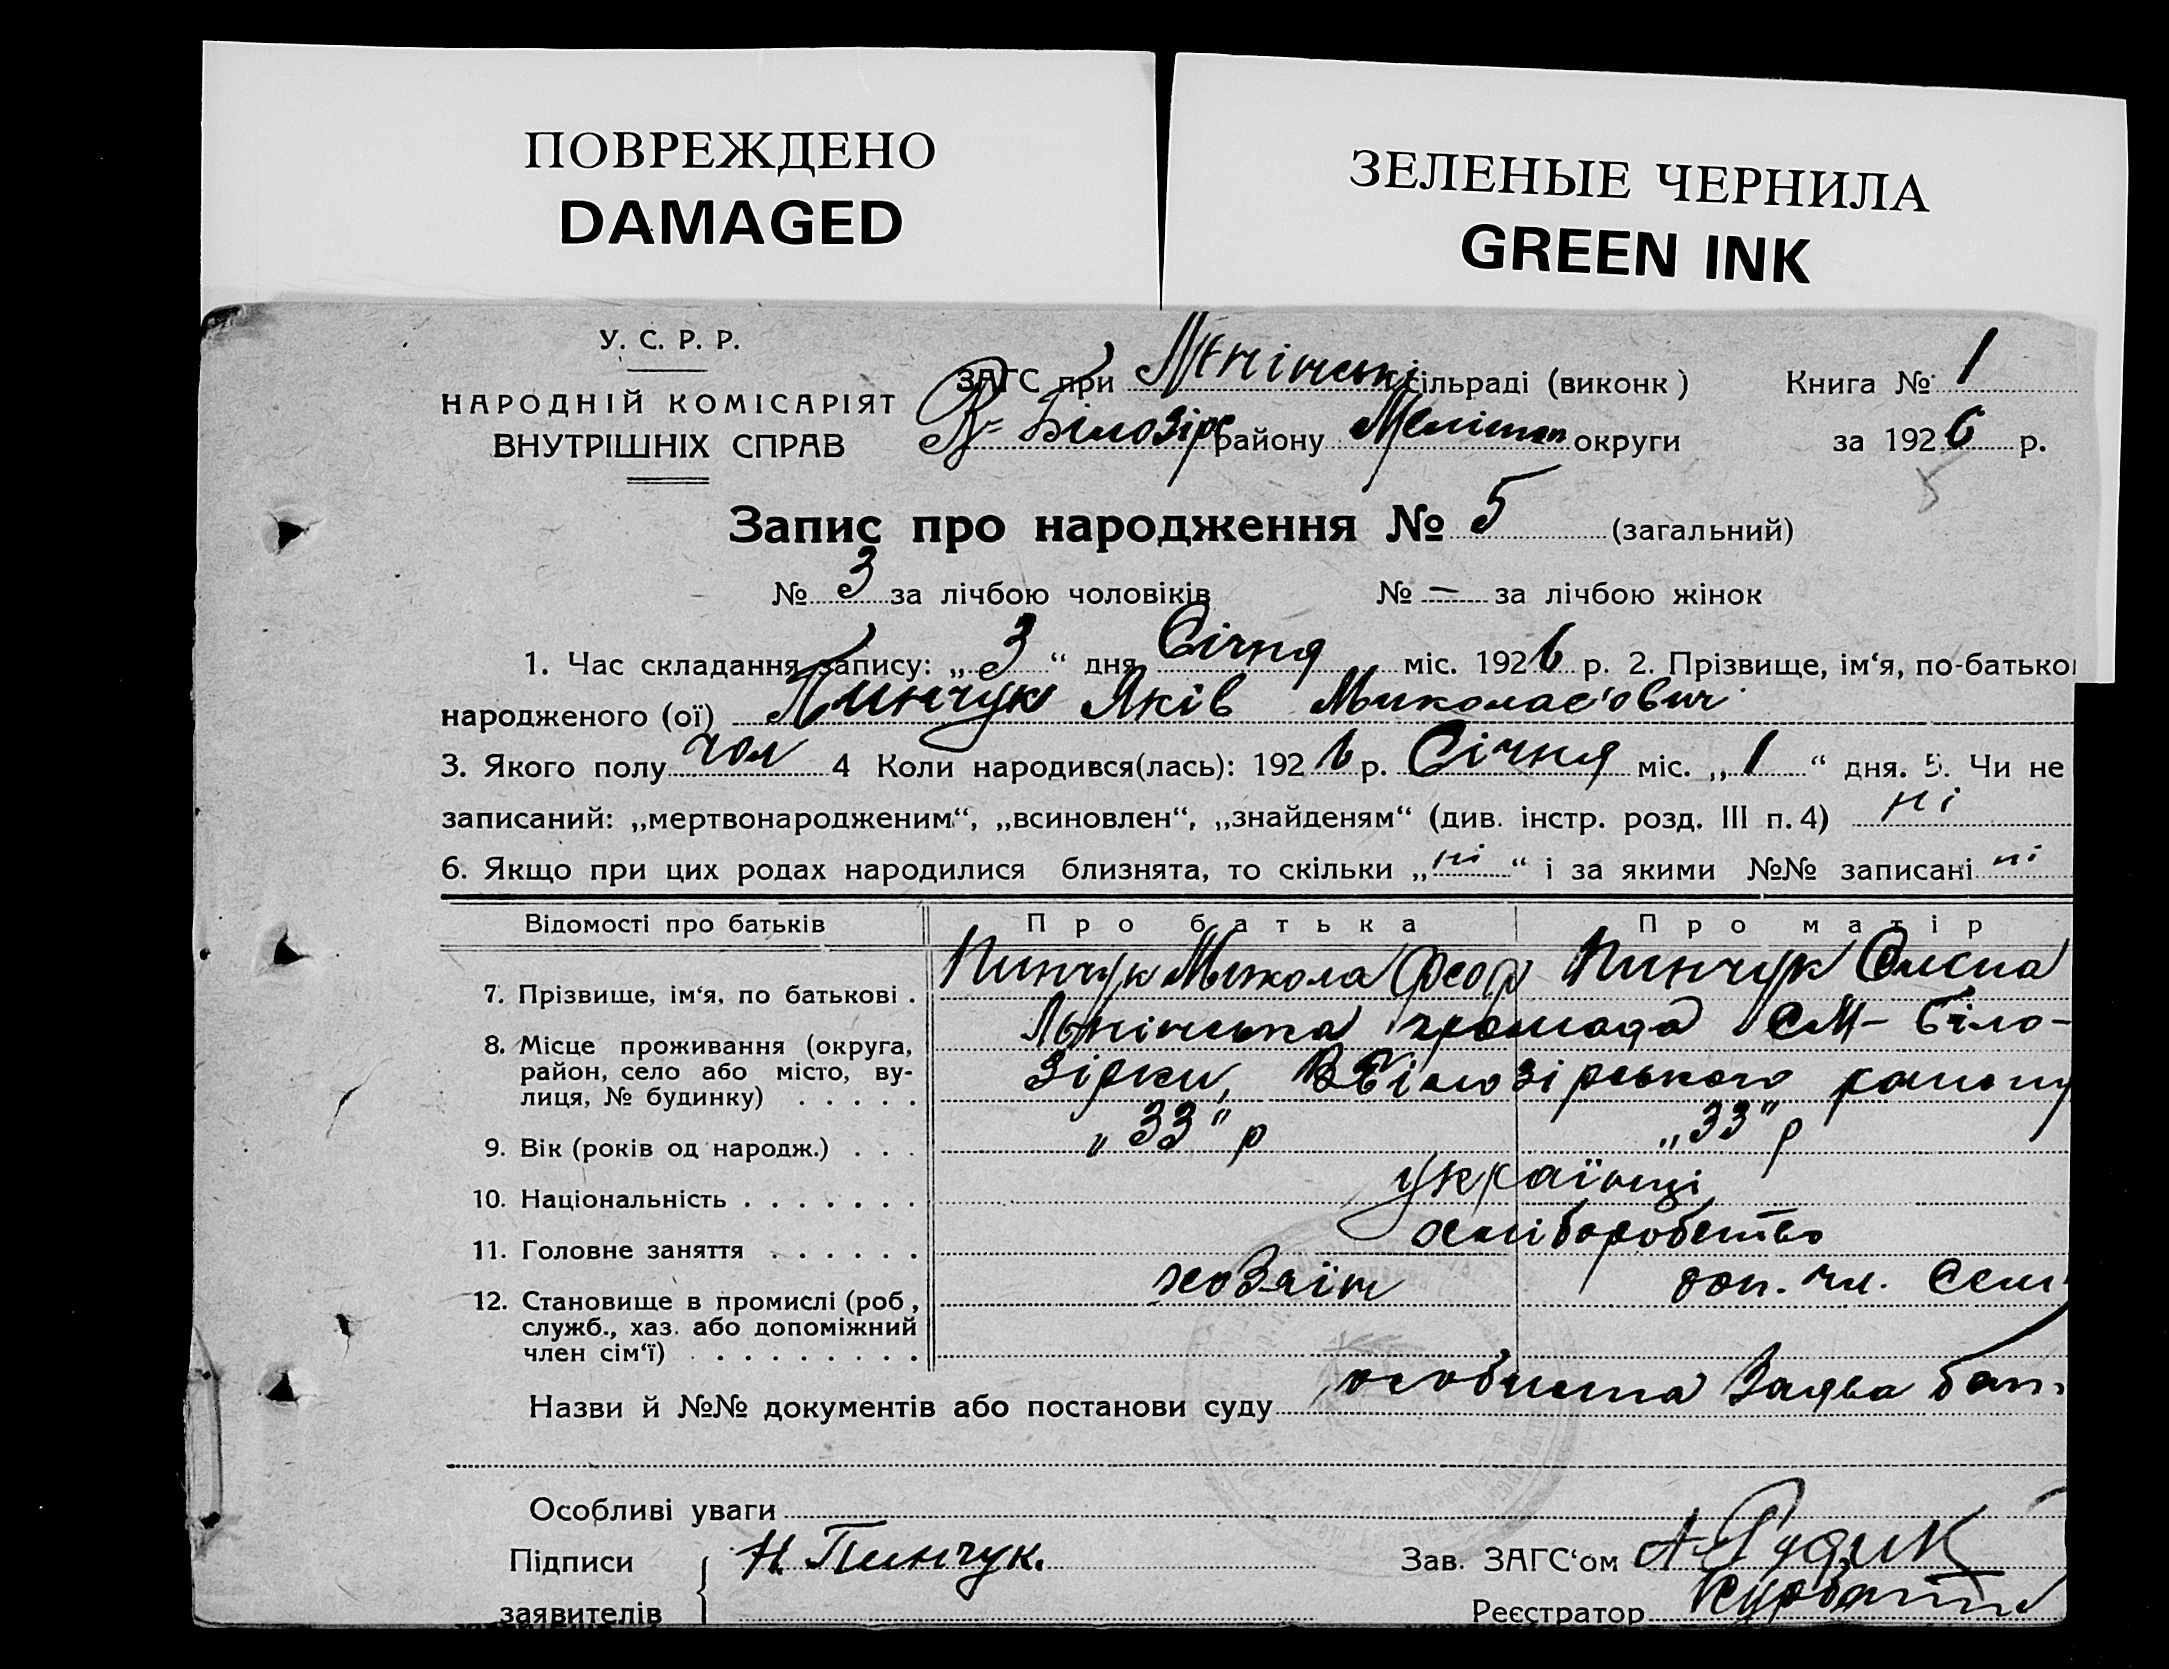 ПОВРЕЖДЕНО
DAMAGED
ЗЕЛЕНЫЕ ЧЕРНИЛА
GREEN INK
У. С. Р. Р.
НАРОДНІЙ КОМІСАРІЯТ
ВНУТРІШНІХ СПРАВ
ЗАГС при сільраді (виконк) Книга № 1
В-Білозірс району Меліτοп округи за 1926 р.
5
Запис про народження № 5 (загальний)
№ 3 за лічбою чоловіків № — за лічбою жінок
1. Час складання запису: „3“ дня Січня міс. 1926 р. 2. Прізвище, ім‘я, по-батьков
народженого (ої) Пинчук Яків Миколаєович
3. Якого полу чол 4 Коли народився(лась): 1926 р. Січня міс. „1“ дня. 5. Чи не
записаний: „мертвонародженим“, „всиновлен“, „знайденям“ (див. інстр. розд. III п. 4) ні
6. Якщо при цих родах народилися близнята, то скільки „ні“ і за якими №№ записані ні
Відомості про батьків Про батька Про матір
7. Прізвище, ім‘я, по батькові . Пинчук Микола Феод Пинчук Олєна
8. Місце проживання (округа, громада М-Біло-
район, село або місто, ву- зірки, ВБілозірського району
лиця, № будинку) . . . . .
9. Вік (років од народж.) . . . „33“ р „33“ р
10. Національність . . . . . . . українці
11. Головне заняття . . . . . . хліборобство
12. Становище в промислі (роб, хозяїн доп. чл. сем
служб., хаз. або допоміжний
член сім‘ї) . . . . . . . . .
Назви й №№ документів або постанови суду особиста заява бат
Особливі уваги
Підписи Н. Пинчук. Зав. ЗАГС‘ом А Рудик
заявителів Реєстратор